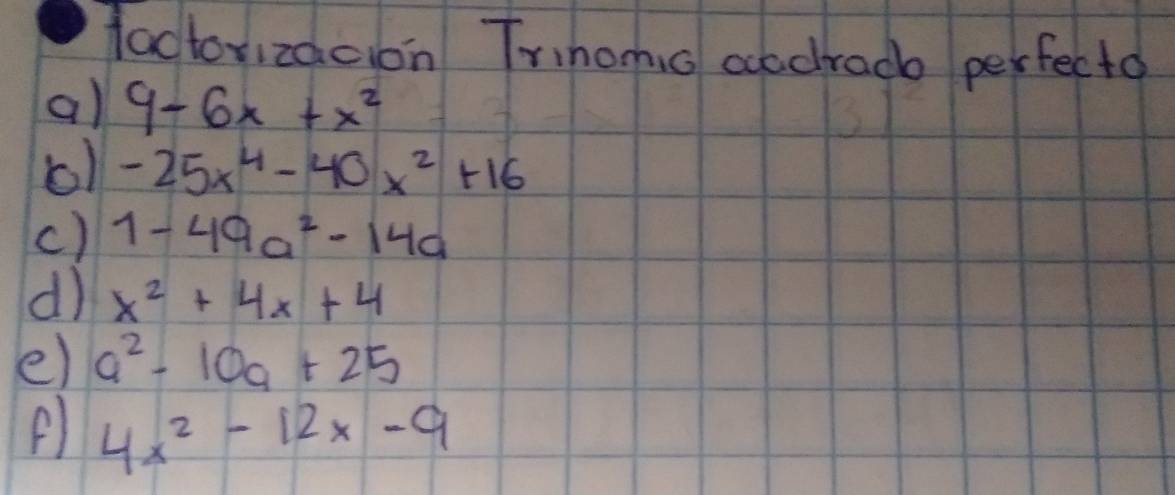 Factorización Trinomio cuadrado perfecto
a) 9-6x+x²
b) -25x⁴-40x²+16
c) 1-49a²-14a
d) x²+4x+4
e) a²-10a+25
f) 4x²-12x-9